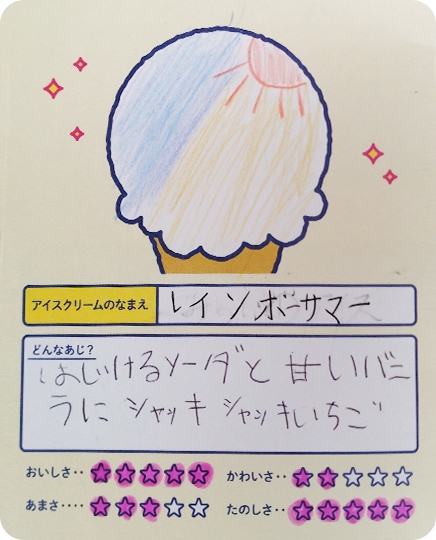 アイスクリームのなまえ
レインボーサマー
どんなあじ?
はじけるソーダと甘いバニ
ラに シャッキシャッキいちご
おいしさ‥
かわいさ‥
あまさ‥‥
たのしさ‥